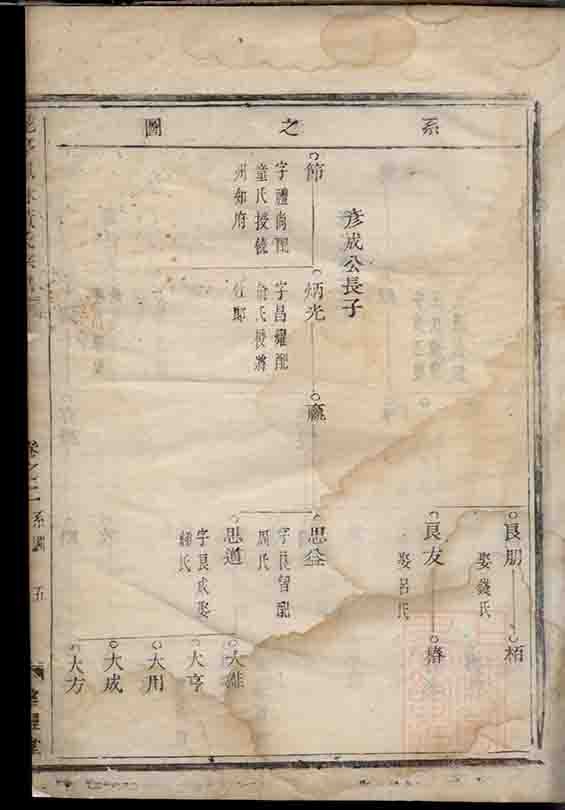 系之圖
良朋
娶錢氏
栢
良友
娶呂氏
椿
彦成公長子
節
字禮尚配
童氏授
州知府
炳光
字昌耀配
俞氏授將
仕郎
思益
周氏
思道
字良成娶
大雅
大亨
大用
大成
大方
卷之二
系圖
五